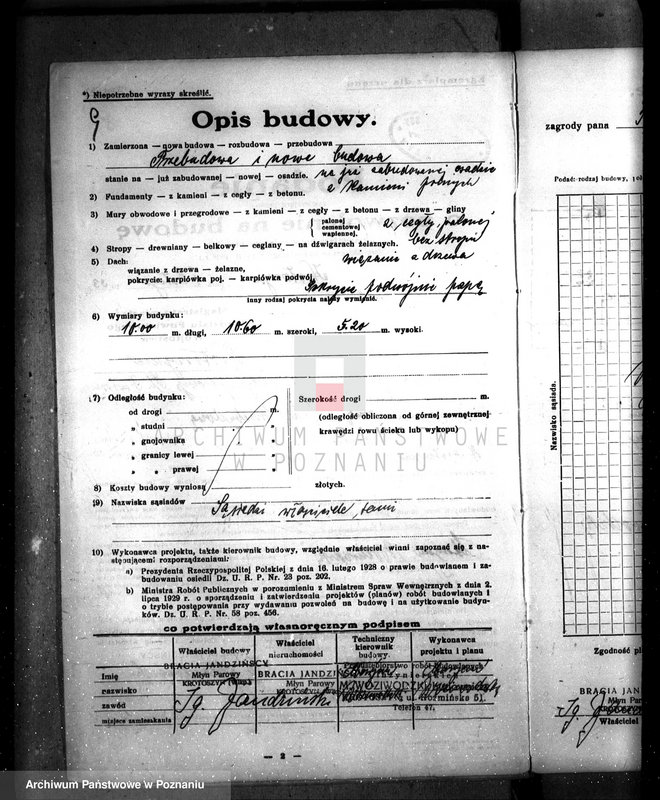 *) Niepotrzebne wyrazy skreślić.
Opis budowy.
1) Zamierzona — nowa budowa — rozbudowa — przebudowa
Przebudowa i nowa budowa
stanie na — już zabudowanej — nowej — osadzie. na już zabudowanej osadzie
z kamieni polnych
2) Fundamenty — z kamieni — z cegły — z betonu.
3) Mury obwodowe i przegrodowe — z kamieni — z cegły — z betonu — z drzewa — gliny
palonej
cementowej
wapiennej.
z cegły palonej
4) Stropy — drewniany — belkowy — ceglany — na dźwigarach żelaznych. bez stropu
5) Dach: wiązanie z drzewa
wiązanie z drzewa — żelazne,
pokrycie: karpiówka poj. — karpiówka podwójn.
Pokrycie podwójnie papą
inny rodzaj pokrycia należy wymienić.
6) Wymiary budynku:
10.00 m. długi, 10.60 m. szeroki, 5.20 m. wysoki.
7) Odległość budynku:
od drogi m.
„ studni „
„ gnojownika „
„ granicy lewej „
„ „ prawej „
Szerokość drogi m.
(odległość obliczona od górnej zewnętrznej
krawędzi rowu ścieku lub wykopu)
8) Koszty budowy wyniosą złotych.
9) Nazwiska sąsiadów Sąsiedzi właściciele sami
10) Wykonawca projektu, także kierownik budowy, względnie właściciel winni zapoznać się z na-
stępującemi rozporządzeniami:
a) Prezydenta Rzeczypospolitej Polskiej z dnia 16. lutego 1928 o prawie budowlanem i za-
budowaniu osiedli Dz. U. R. P. Nr. 23 poz. 202.
b) Ministra Robót Publicznych w porozumieniu z Ministrem Spraw Wewnętrznych z dnia 2.
lipca 1929 o sporządzeniu i zatwierdzeniu projektów (planów) robót budowlanych i
o trybie postępowania przy wydawaniu pozwoleń na budowę i na użytkowanie budyn-
ków. Dz. U. R. P. Nr. 58 poz. 456.
co potwierdzają własnoręcznym podpisem
Właściciel budowy
Właściciel nieruchomości
Techniczny kierownik budowy.
Wykonawca projektu i planu
Imię
nazwisko
zawód
miejsce zamieszkania
BRACIA JANDZIŃSCY
Młyn Parowy
KROTOSZYN
BRACIA JANDZI
Młyn Parowy
KROTOSZYN
Telefon 47.
— 2 —
zagrody pana
Podać: rodzaj budowy,
Nazwisko sąsiada.
Zgodność
BRACIA JAN
Młyn Par
KROTOSZYN
Właściciel
ARCHIWUM PAŃSTWOWE
W POZNANIU
Archiwum Państwowe w Poznaniu